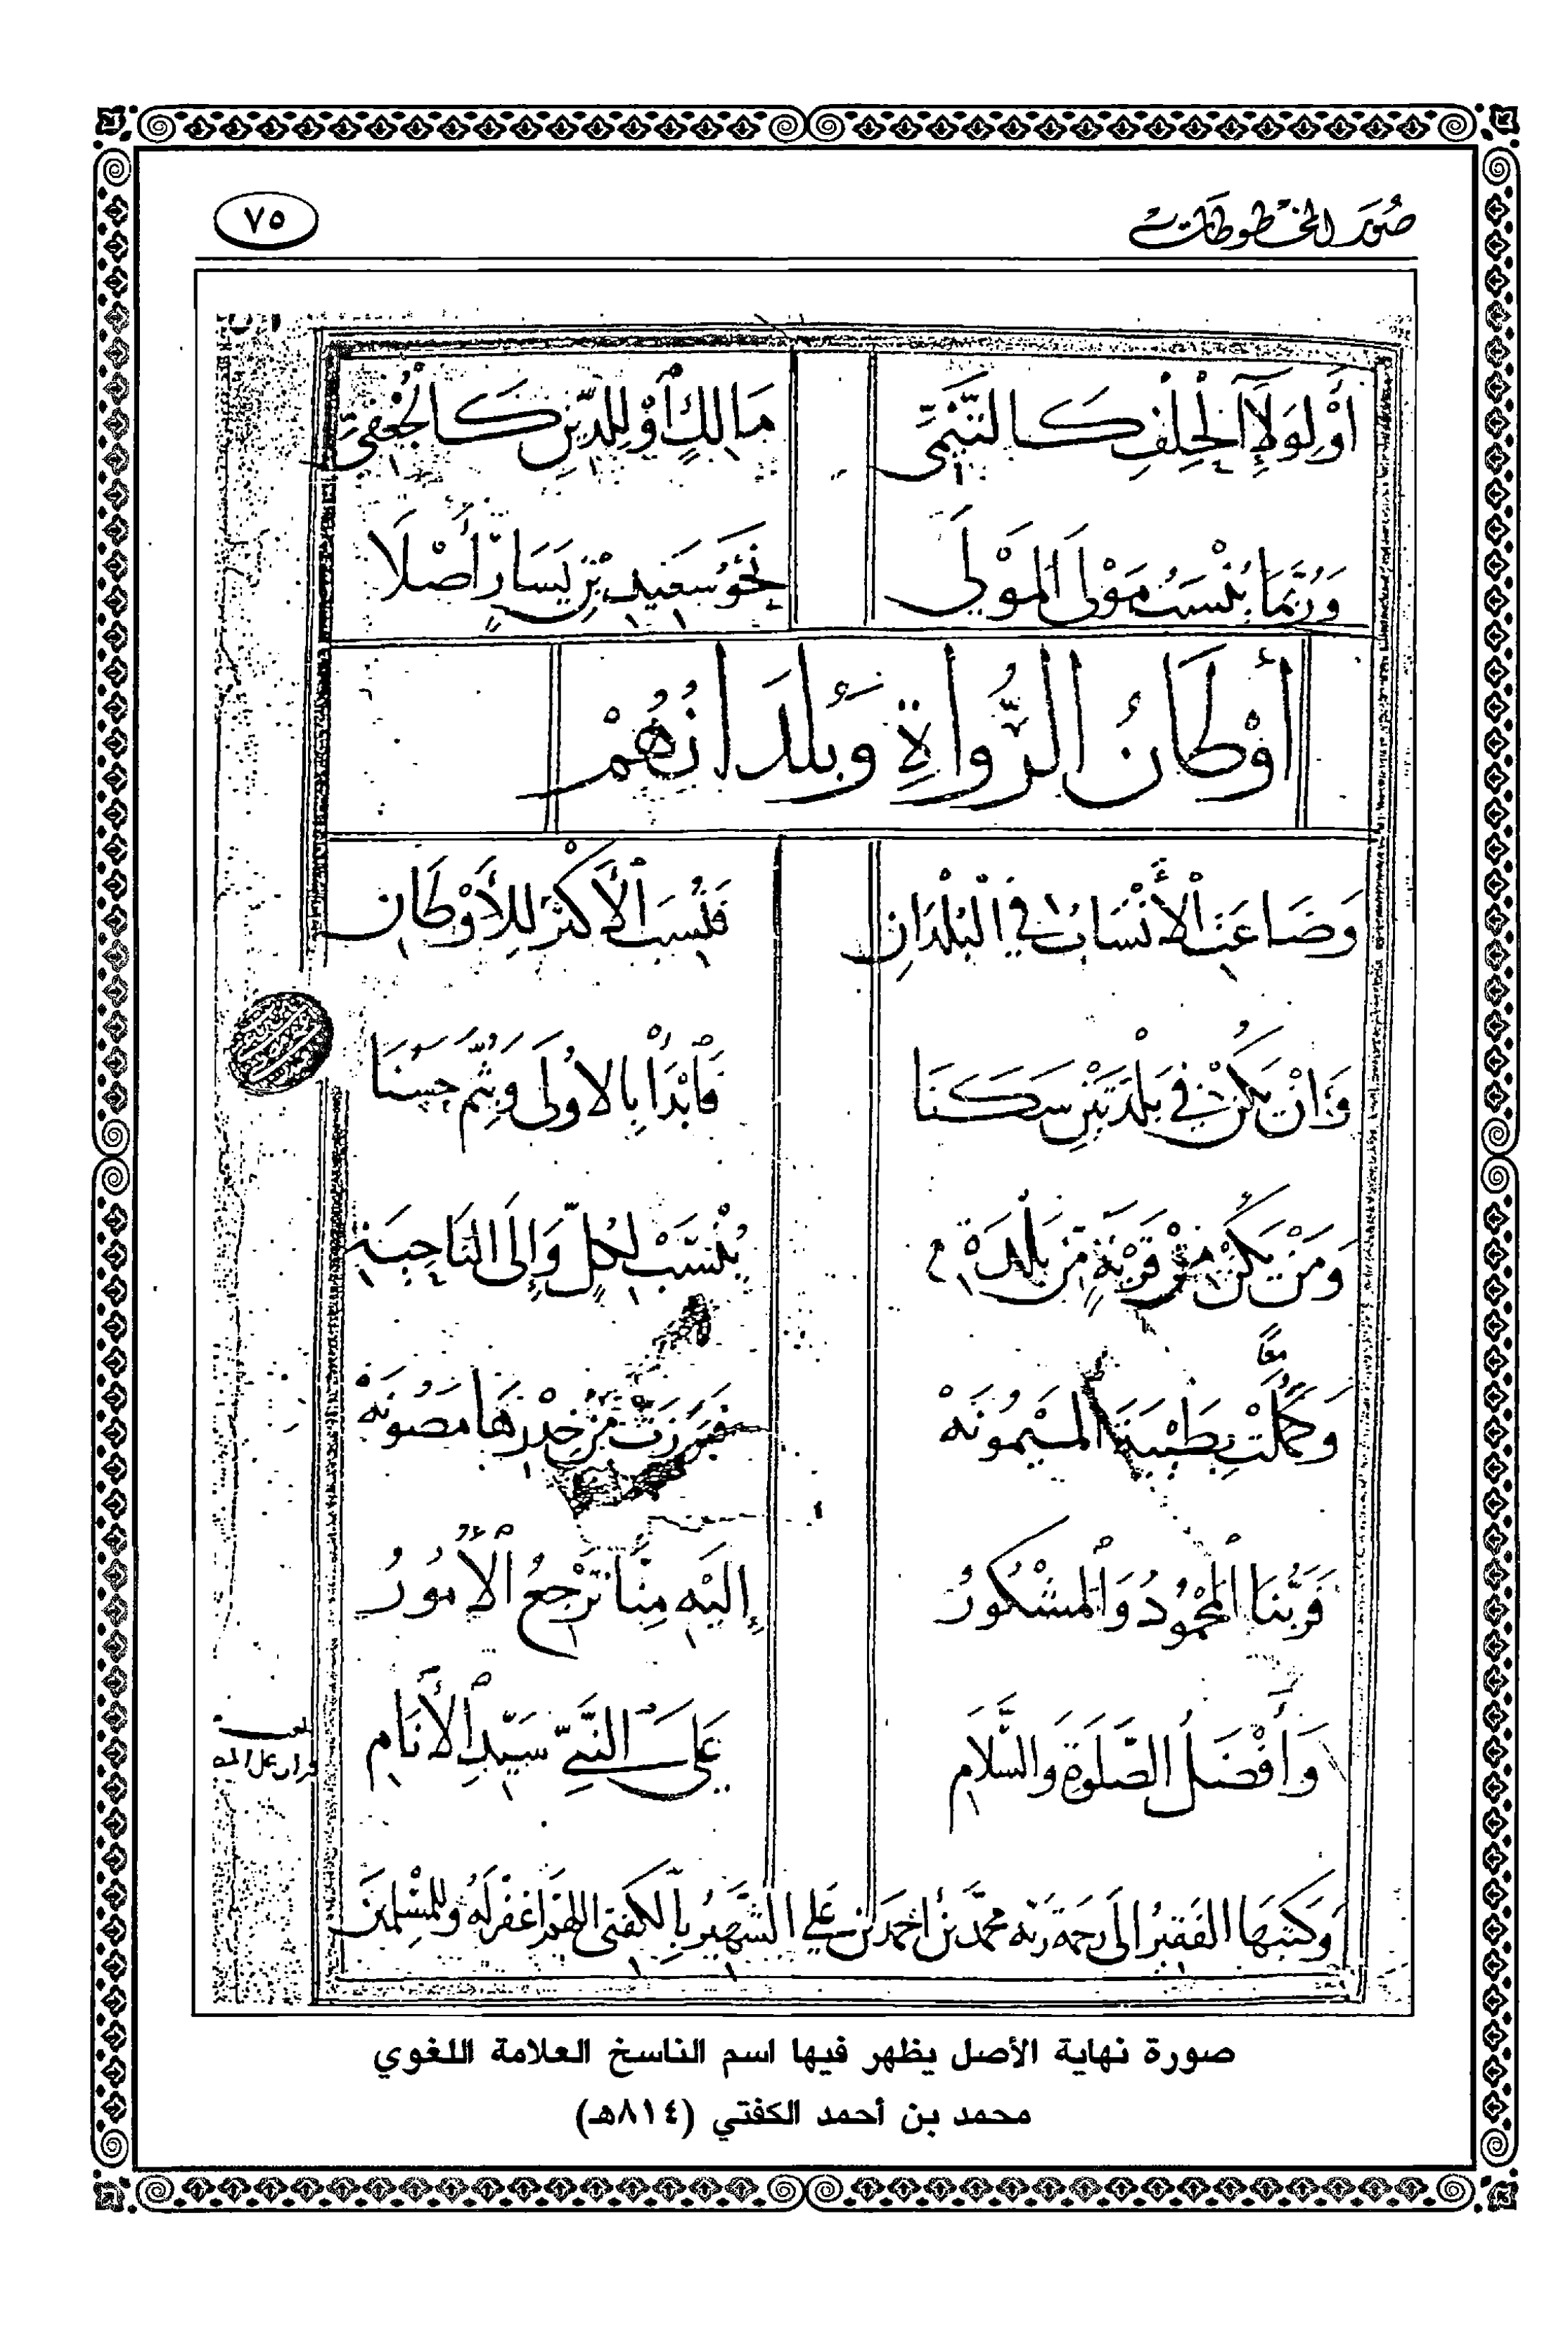 صُوَر المخطوطات
٧٥
أَوْ لِوَلَاءِ الْحِلْفِ كَالتَّيْمِيِّ مَالِكٌ أَوْ لِلدِّينِ كَالْجُعْفِيِّ
وَرُبَّمَا يُنْسَبُ مَوْلَى الْمَوْلَى نَحْوُ سَعِيدِ بْنِ يَسَارٍ أَصْلَا
أَوْطَانُ الرُّوَاةِ وَبُلْدَانُهُمْ
وَضَاعَتِ الْأَنْسَابُ فِي الْبُلْدَانِ فَنُسِبَ الْأَكْثَرُ لِلْأَوْطَانِ
وَإِنْ يَكُنْ فِي بَلْدَتَيْنِ سَكَنَا فَابْدَأْ بِالْأُولَى وَبِثُمَّ حَسُنَا
وَمَنْ يَكُنْ مِنْ قَرْيَةٍ مِنْ بَلْدَةِ يُنْسَبْ لِكُلٍّ وَإِلَى النَّاحِيَةِ
معًا
وَكَمُلَتْ بِطَيْبَةَ الْمَيْمُونَهْ فَبَرَزَتْ مِنْ خِدْرِهَا مَصُونَهْ
فَرَبُّنَا الْمَحْمُودُ وَالْمَشْكُورُ إِلَيْهِ مِنَّا تَرْجِعُ الْأُمُورُ
وَأَفْضَلُ الصَّلٰوةِ وَالسَّلَامِ عَلَى النَّبِيِّ سَيِّدِ الْأَنَامِ
وَكَتَبَهَا الفَقِيرُ إلَى رَحْمَة رَبِّه محمَّد بن أحْمَد بن عَلي الشَّهِيرُ بِالكفتي اللهمَّ اغفِرْ لَهُ وَلِلْمُسْلِمينَ
صورة نهاية الأصل يظهر فيها اسم الناسخ العلامة اللغوي
محمد بن أحمد الكفتي (٨١٤هـ)